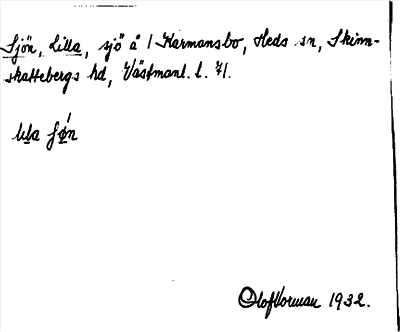 Sjön, Lilla, sjö å 1 Karmansbo, Heds sn, Skinn-
skattebergs hd, Västmanl. l. 71.
lıla ʃø̀n
Olof Vorman 1932.